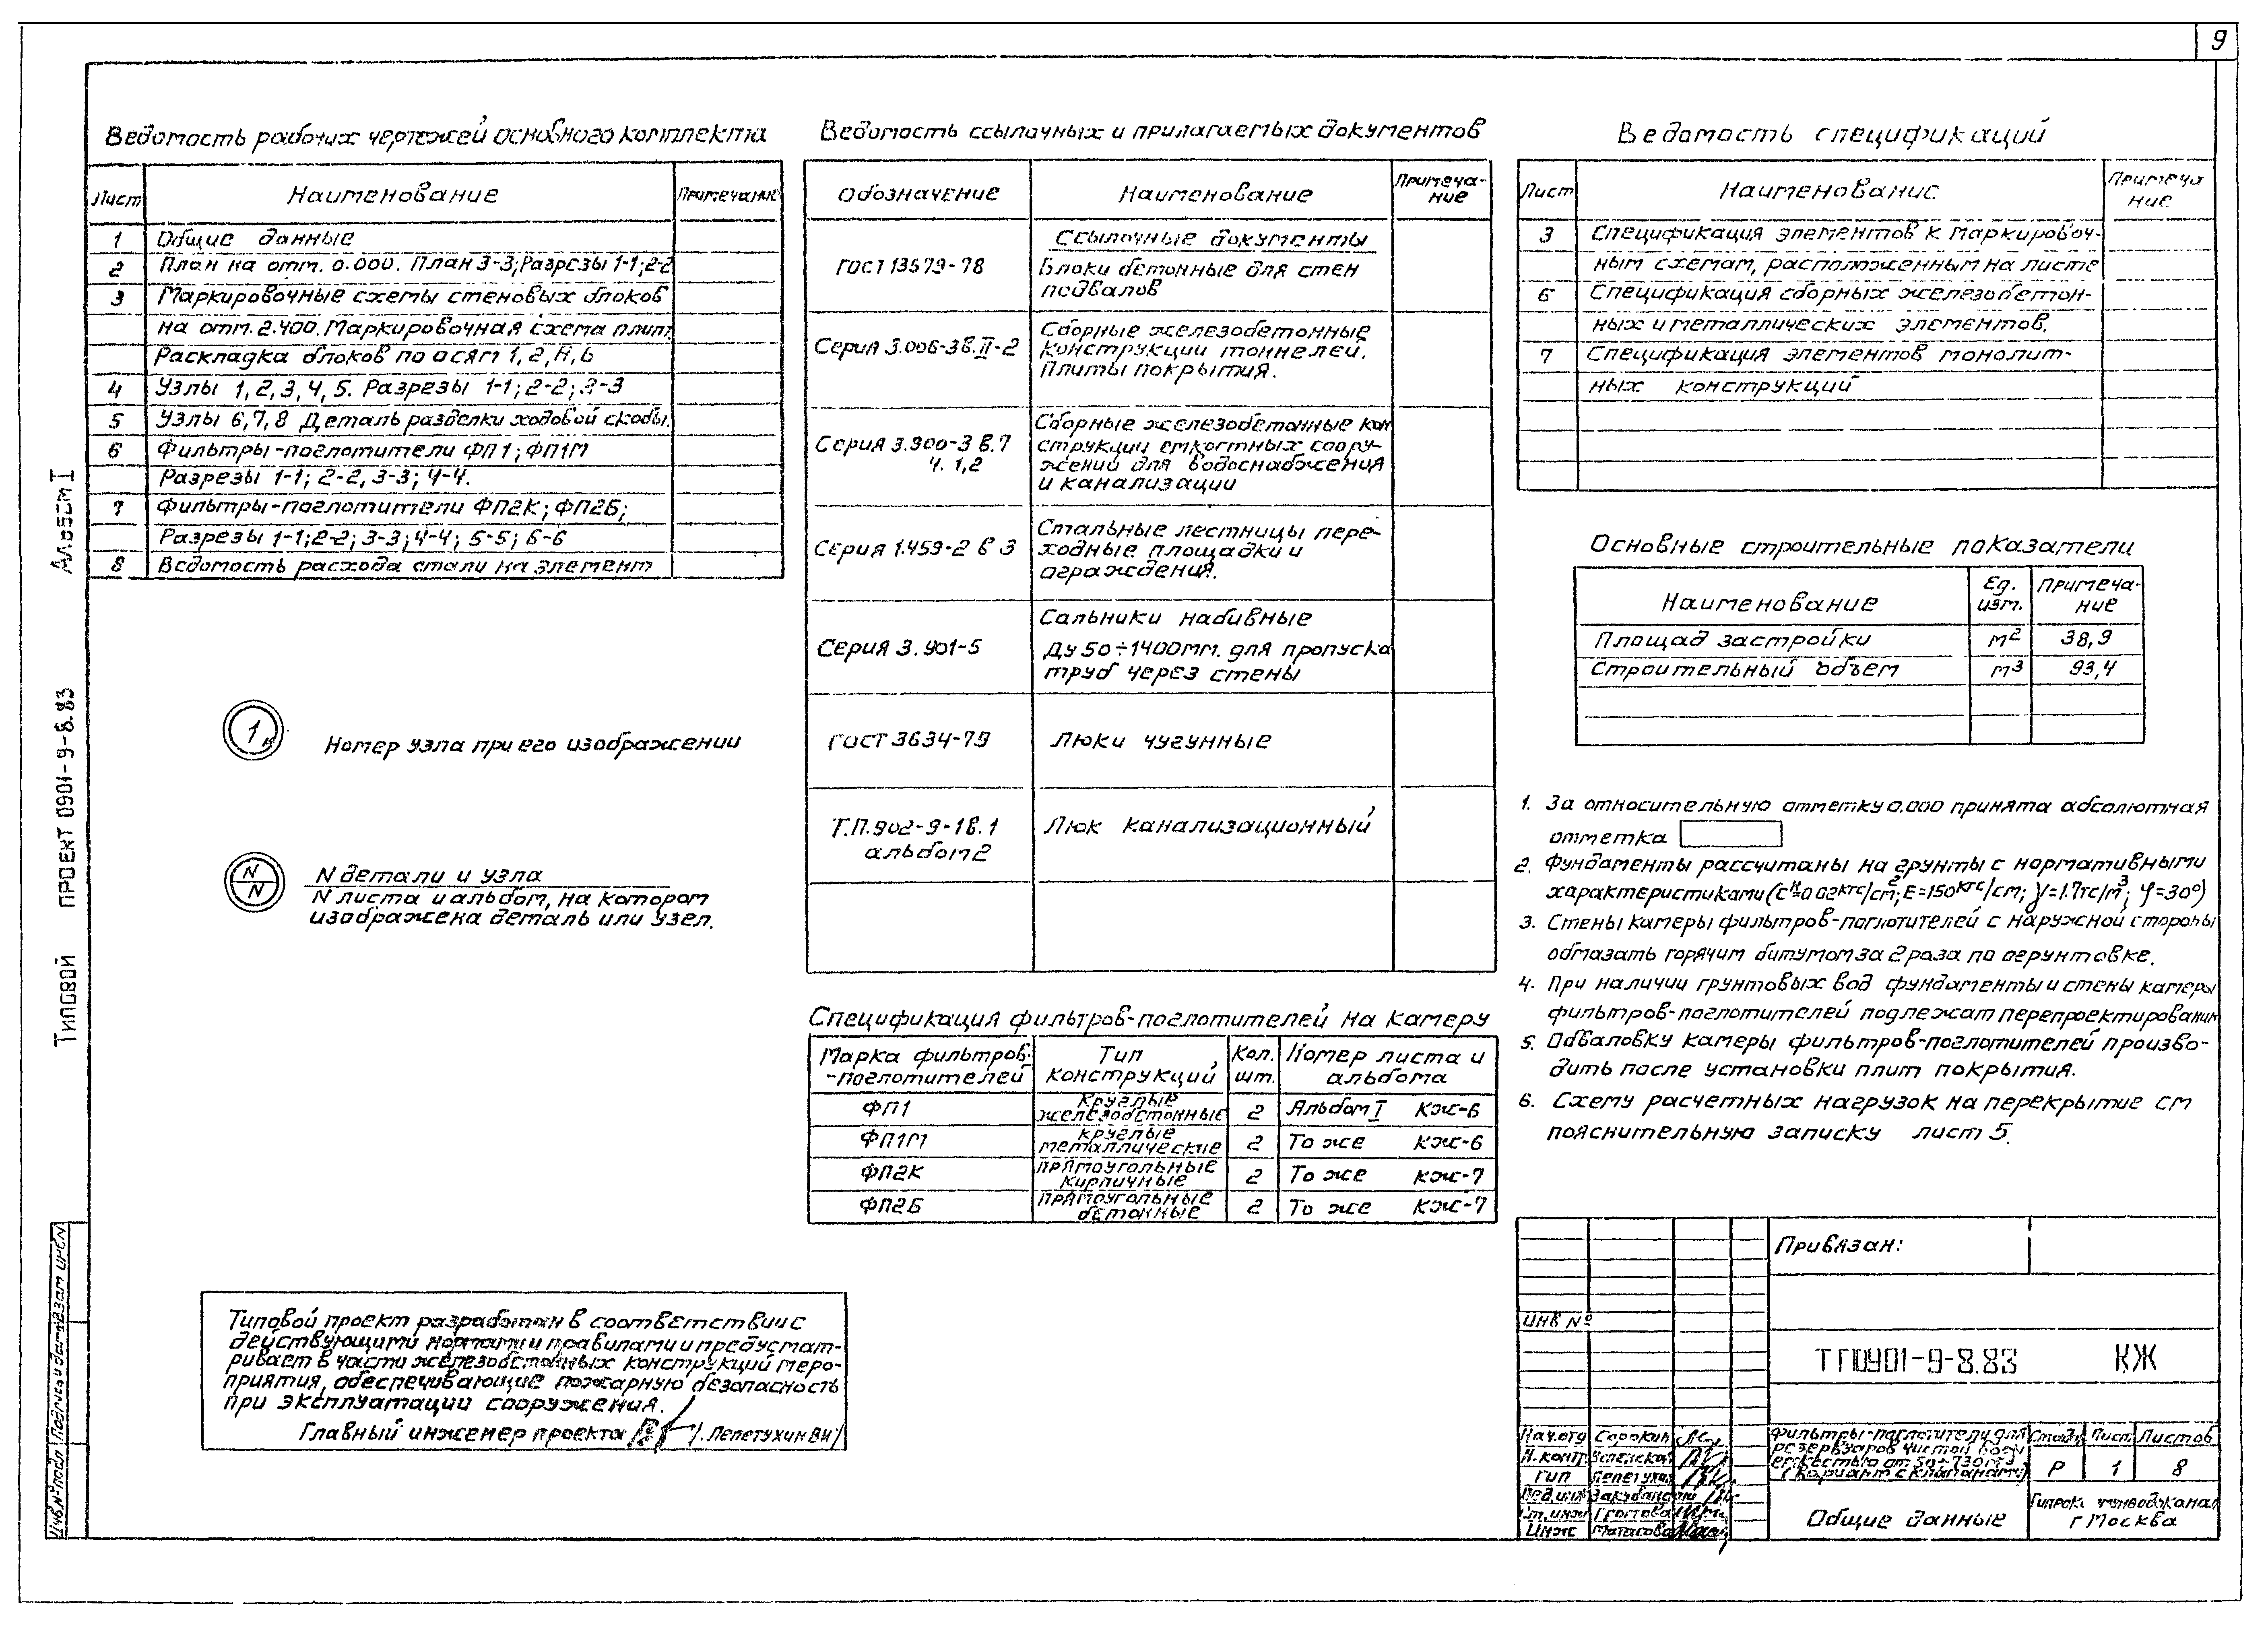 9
Ведомость рабочих чертежей основного комплекта
Лист Наименование Примечание
1 Общие данные
2 План на отм. 0.000. План 3-3; Разрезы 1-1; 2-2
3 Маркировочные схемы стеновых блоков
на отм. 2.400. Маркировочная схема плит.
Раскладка блоков по осям 1, 2, А, Б
4 Узлы 1, 2, 3, 4, 5. Разрезы 1-1; 2-2; 3-3
5 Узлы 6, 7, 8 Деталь разделки ходовой скобы.
6 Фильтры-поглотители ФП1; ФП1М
Разрезы 1-1; 2-2, 3-3; 4-4.
7 Фильтры-поглотители ФП2К; ФП2Б;
Разрезы 1-1; 2-2; 3-3; 4-4; 5-5; 6-6
8 Ведомость расхода стали на элемент
1
Номер узла при его изображении
N
N
N детали и узла
N листа и альбом, на котором
изображена деталь или узел.
Типовой проект разработан в соответствии с
действующими нормами и правилами и предусмат-
ривает в части железобетонных конструкций меро-
приятия, обеспечивающие пожарную безопасность
при эксплуатации сооружения.
Главный инженер проекта /Лепетухин ВИ/
Ведомость ссылочных и прилагаемых документов
Обозначение Наименование Примеча-
ние
Ссылочные документы
ГОСТ 13579-78 Блоки бетонные для стен
подвалов
Серия 3.006-3в.II-2 Сборные железобетонные
конструкции тоннелей.
Плиты покрытия.
Серия 3.900-3 в.7
ч. 1,2
Сборные железобетонные кон
струкции емкостных соору-
жений для водоснабжения
и канализации
Серия 1.459-2 в 3 Стальные лестницы пере-
ходные площадки и
ограждения.
Серия 3.901-5 Сальники набивные
Ду 50÷1400мм. для пропуска
труб через стены
ГОСТ 3634-79 Люки чугунные
Т.П. 902-9-1в.1
альбом 2
Люк канализационный
Спецификация фильтров-поглотителей на камеру
Марка фильтров-
-поглотителей
Тип
конструкций
Кол.
шт.
Номер листа и
альбома
ФП1 Круглые
железобетонные 2 Альбом I КЖ-6
ФП1М круглые
металлические 2 То же КЖ-6
ФП2К прямоугольные
кирпичные 2 То же КЖ-7
ФП2Б прямоугольные
бетонные 2 То же КЖ-7
Ведомость спецификаций
Лист Наименование Примеча
ние
3 Спецификация элементов к маркировоч-
ным схемам, расположенным на листе
6 Спецификация сборных железобетон-
ных и металлических элементов.
7 Спецификация элементов монолит-
ных конструкций
Основные строительные показатели
Наименование Ед.
изм. Примеча-
ние
Площад застройки м² 38,9
Строительный объем м³ 93,4
1. За относительную отметку 0.000 принята абсолютная
отметка
2. Фундаменты рассчитаны на грунты с нормативными
характеристиками (Сᴴ=0 02кгс/см²; Е=150кгс/см; γ=1.7тс/м³; φ=30°)
3. Стены камеры фильтров-поглотителей с наружной стороны
обмазать горячим битумом за 2 раза по огрунтовке.
4. При наличии грунтовых вод фундаменты и стены камеры
фильтров-поглотителей подлежат перепроектированию
5. Обваловку камеры фильтров-поглотителей произво-
дить после установки плит покрытия.
6. Схему расчетных нагрузок на перекрытие см
пояснительную записку лист 5.
Привязан:
ИНВ №
ТП0901-9-8.83 КЖ
Нач.отд Сорокин
Н.контр. Успенская
ГИП Лепетухин
Вед.инж
Ст.инж
Инж
Фильтры-поглотители для
резервуаров чистой воды
емкостью от 50÷730м3
(вариант с клапанами)
Стадия Лист Листов
Р 1 8
Общие данные
г Москва
Альбом I
ТИПОВОЙ ПРОЕКТ 0901-9-8.83
Инв.№подл Подпись и дата Взам инв.N